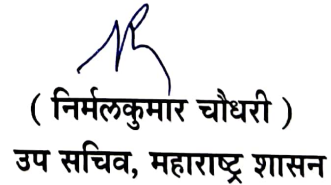 ( निर्मलकुमार चौधरी )
उप सचिव, महाराष्ट्र शासन